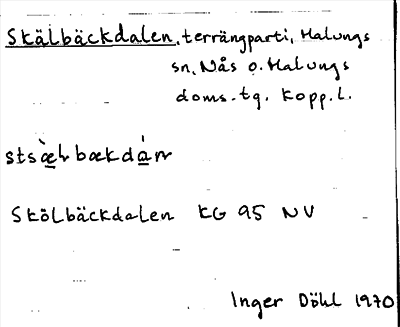 Skälbäckdalen, terrängparti, Malungs
sn, Nås o. Malungs
doms. tg. Kopp. l.
stsæ̀ɫbækdánn
Skölbäckdalen KG 95 NV
Inger Döhl 1970